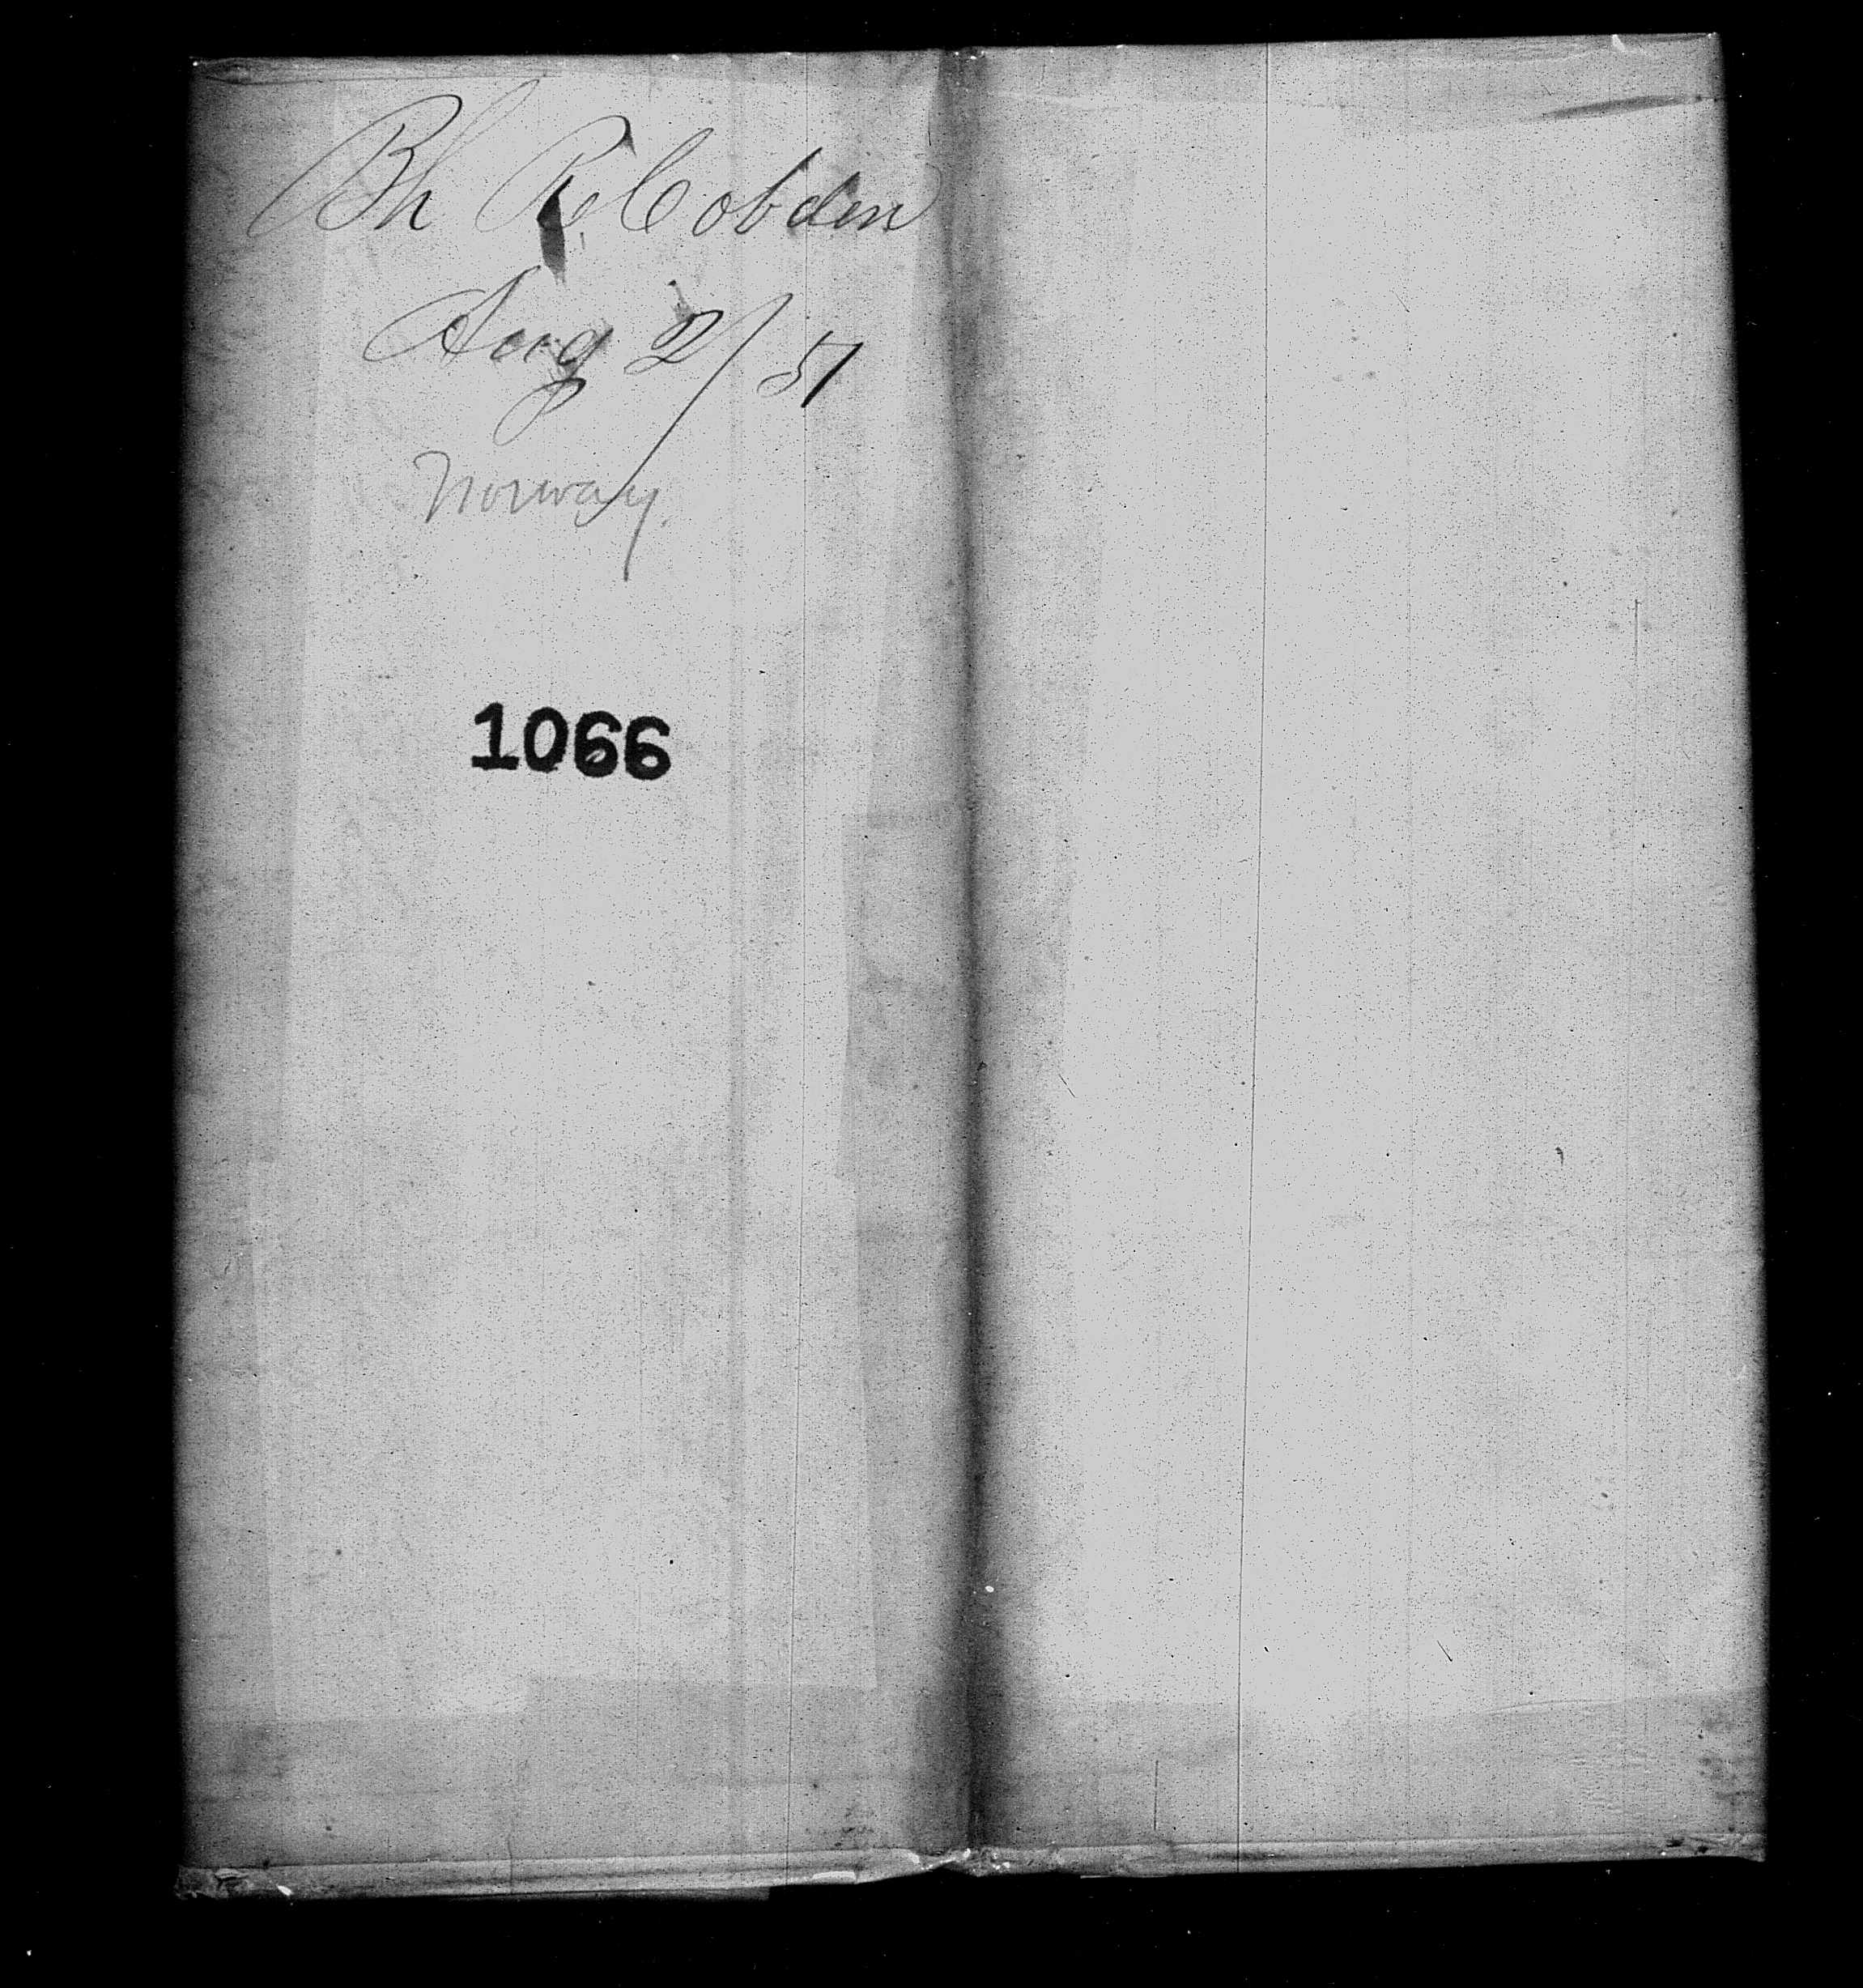 Bk R. Cobden
Aug 2/51
Norway.
1066